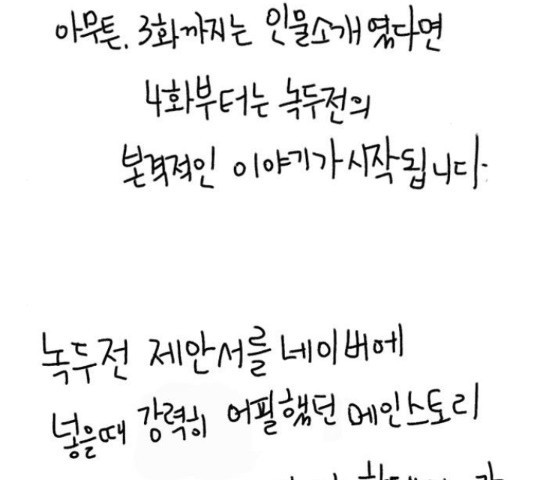 아무튼, 3화까지는 인물소개였다면
4화부터는 녹두전의
본격적인 이야기가 시작됩니다.
녹두전 제안서를 네이버에
넣을때 강력히 어필했던 메인스토리